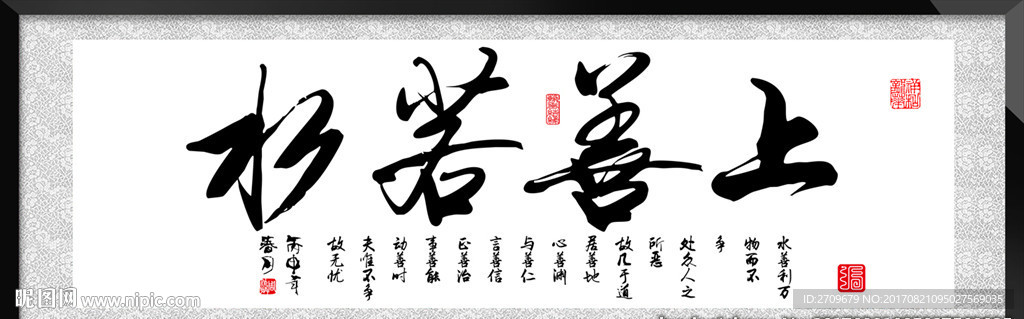 上善若水
水善利万
物而不
争
处众人之
所恶
故几于道
居善地
心善渊
与善仁
言善信
正善治
事善能
动善时
夫唯不争
故无忧
丙申年
春月
昵图网 www.nipic.com
ID:2709679 NO:20170821095027569035